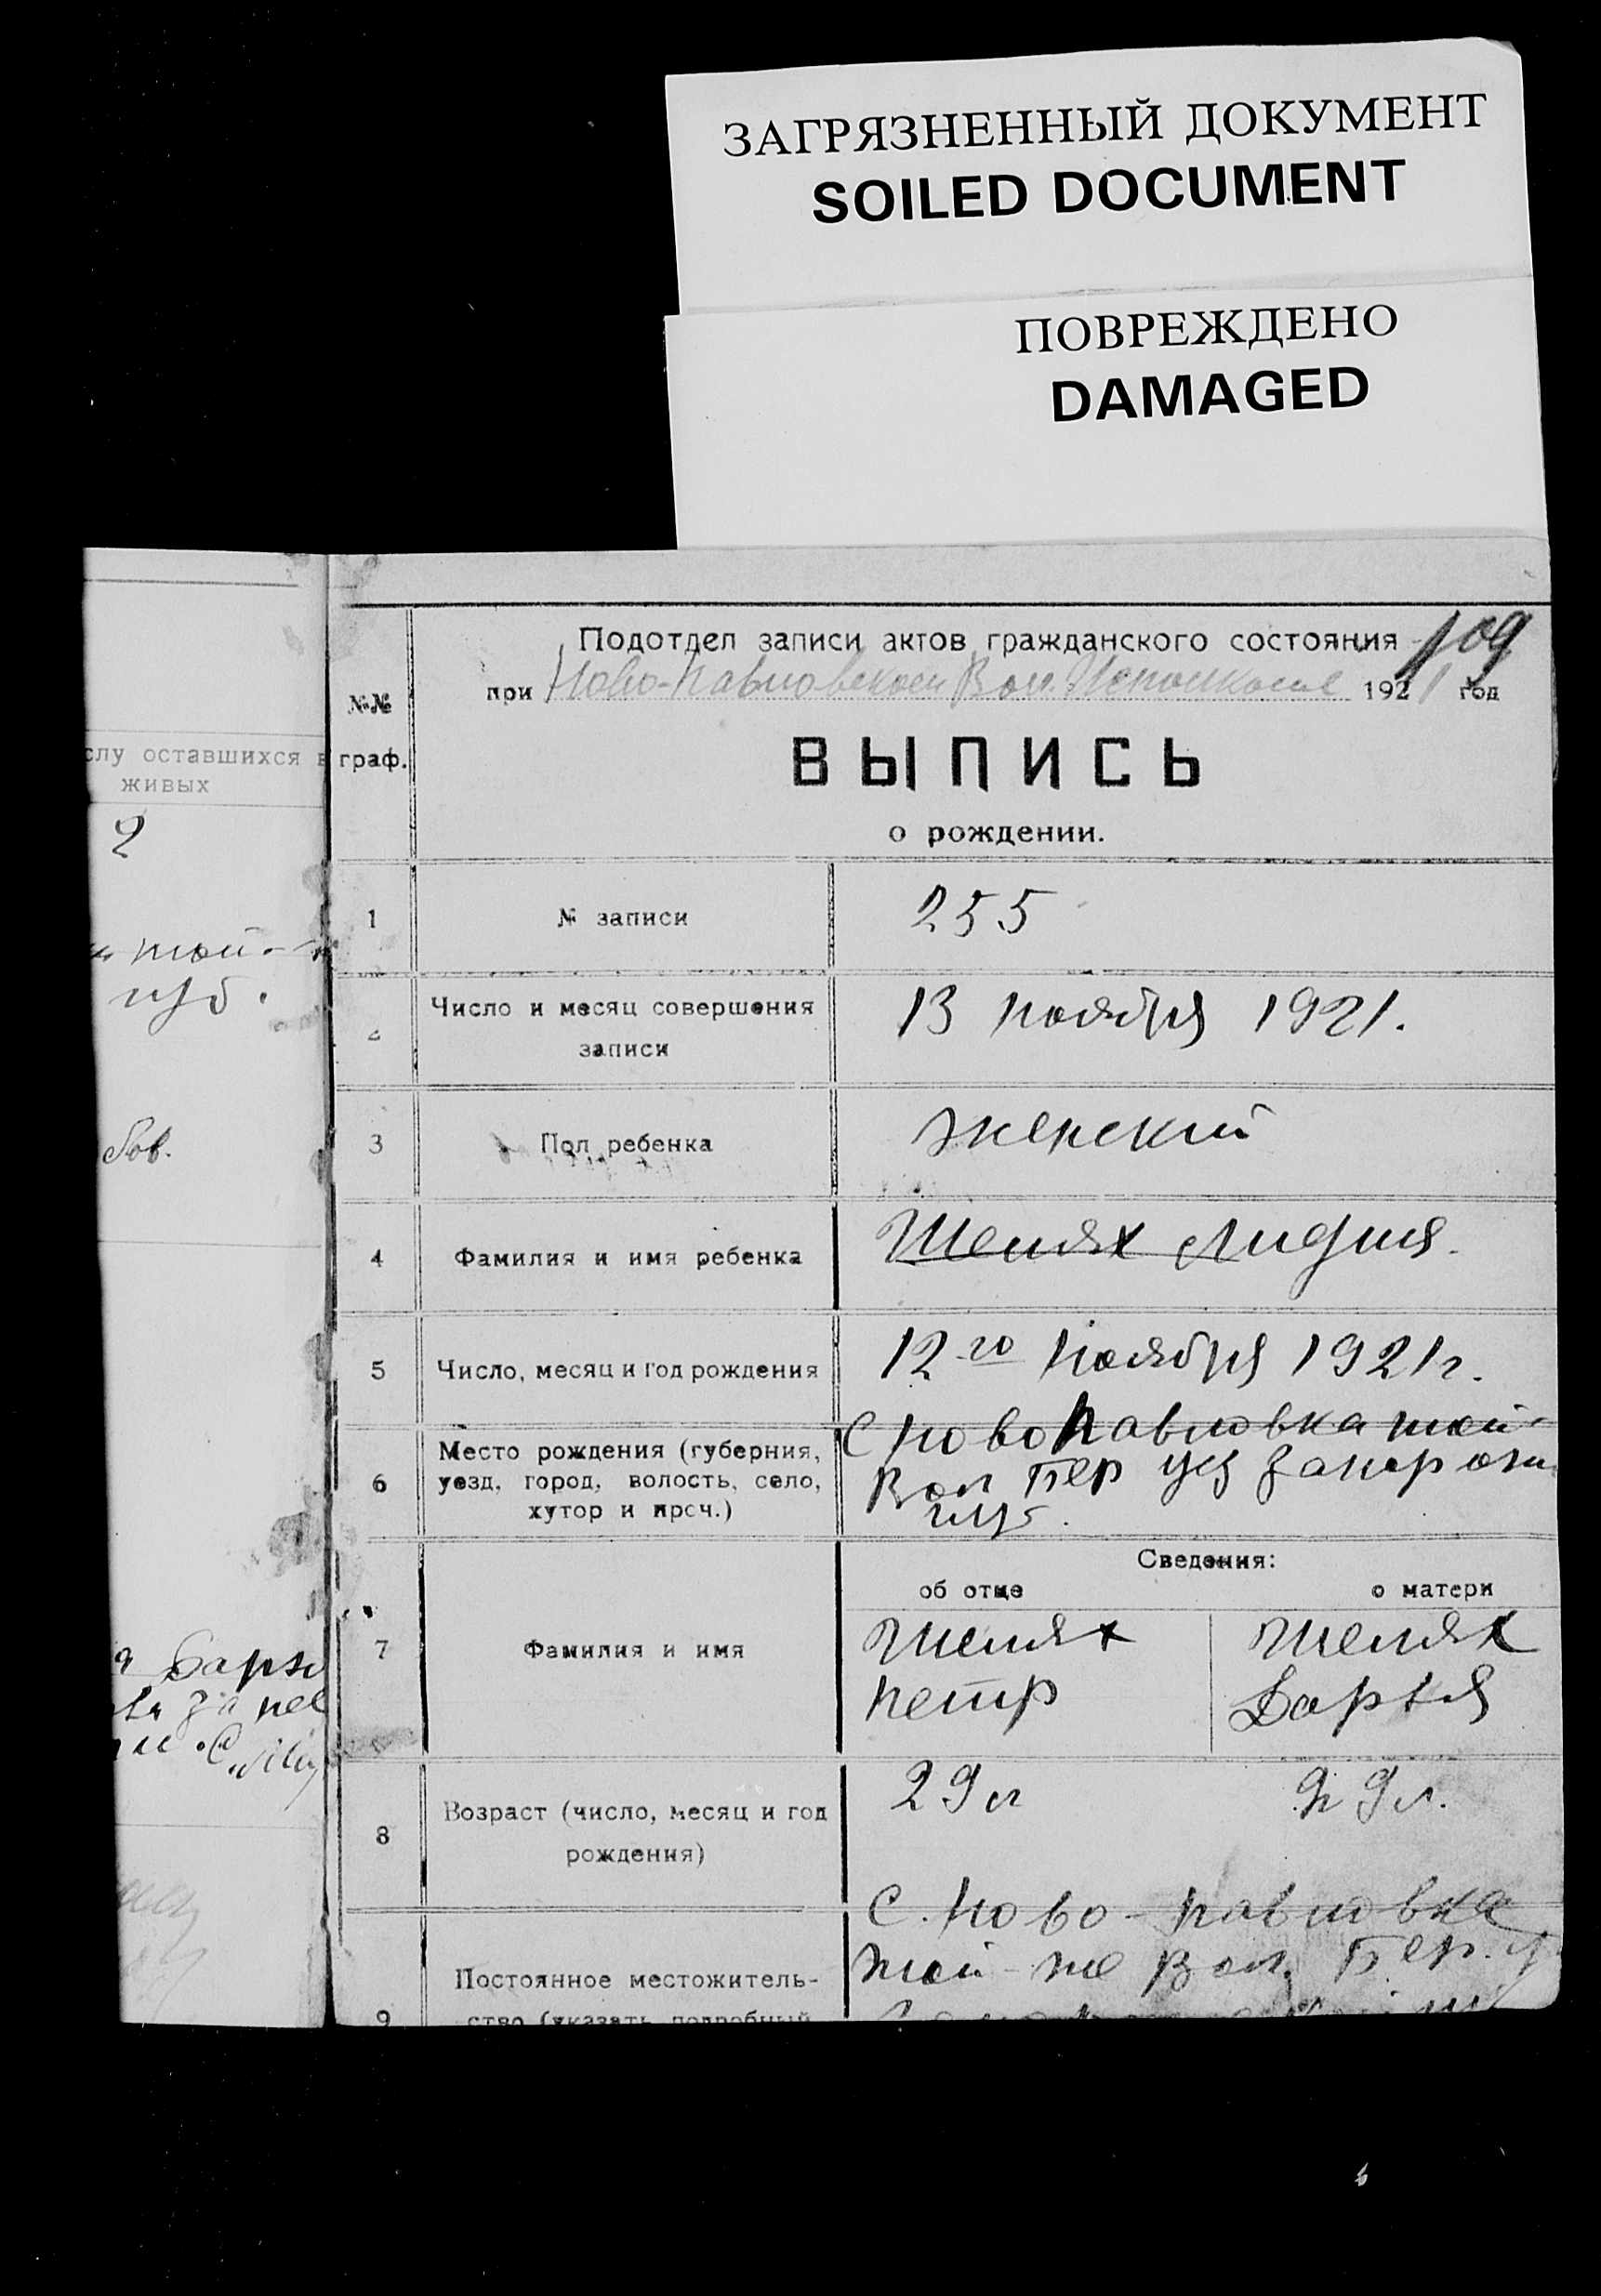 ЗАГРЯЗНЕННЫЙ ДОКУМЕНТ
SOILED DOCUMENT
ПОВРЕЖДЕНО
DAMAGED
слу оставшихся в
живых
2
той-
губ.
за
Подотдел записи актов гражданского состояния 109
при Ново-Павловском Вол. Исполкоме 1921 год
№№
граф.
ВЫПИСЬ
о рождении.
1 № записи 255
Число и месяц совершения
записи
13 ноября 1921.
3 Пол ребенка женский
4 Фамилия и имя ребенка Шелях Лидия.
5 Число, месяц и год рождения 12го ноября 1921 г.
6 Место рождения (губерния,
уезд, город, волость, село,
хутор и проч.)
С Ново Павловка той-
Вол Бер уез Запорож
губ.
Сведения:
об отце о матери
7 Фамилия и имя
Шелях Шелях
Петр Дарья
8 Возраст (число, месяц и год
рождения)
29 л 29 л.
9 Постоянное местожитель-
ство (указать подробный
С. Ново-Павловка
той-же Вол. Бер. у